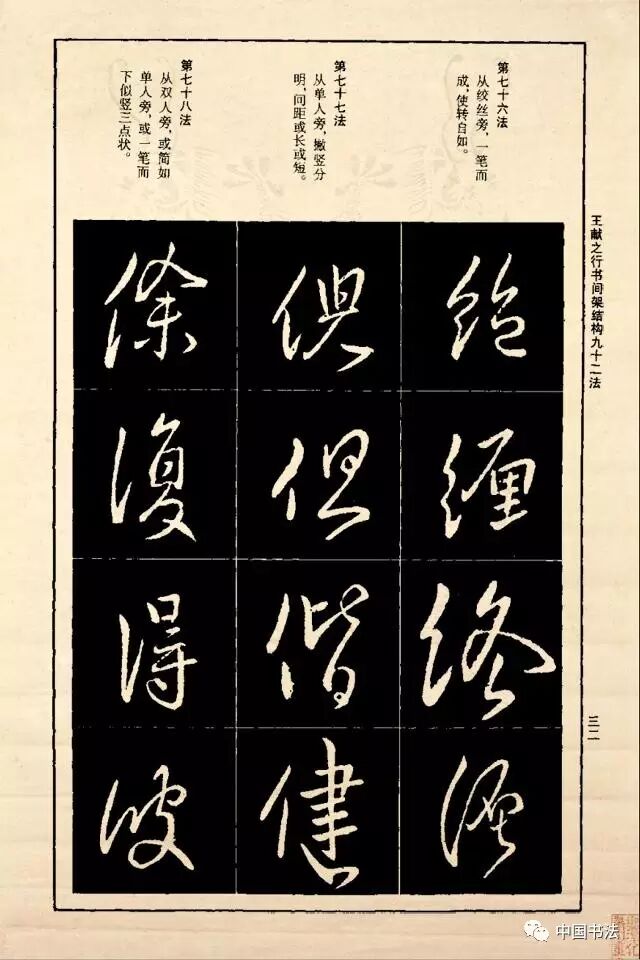 王献之行书间架结构九十二法
三二
第七十六法
从绞丝旁，一笔而
成，使转自如。
终
第七十七法
从单人旁，撇竖分
明，间距或长或短。
俱
但
偕
健
第七十八法
从双人旁，或简如
单人旁，或一笔而
下似竖三点状。
徐
復
得
彼
中国书法